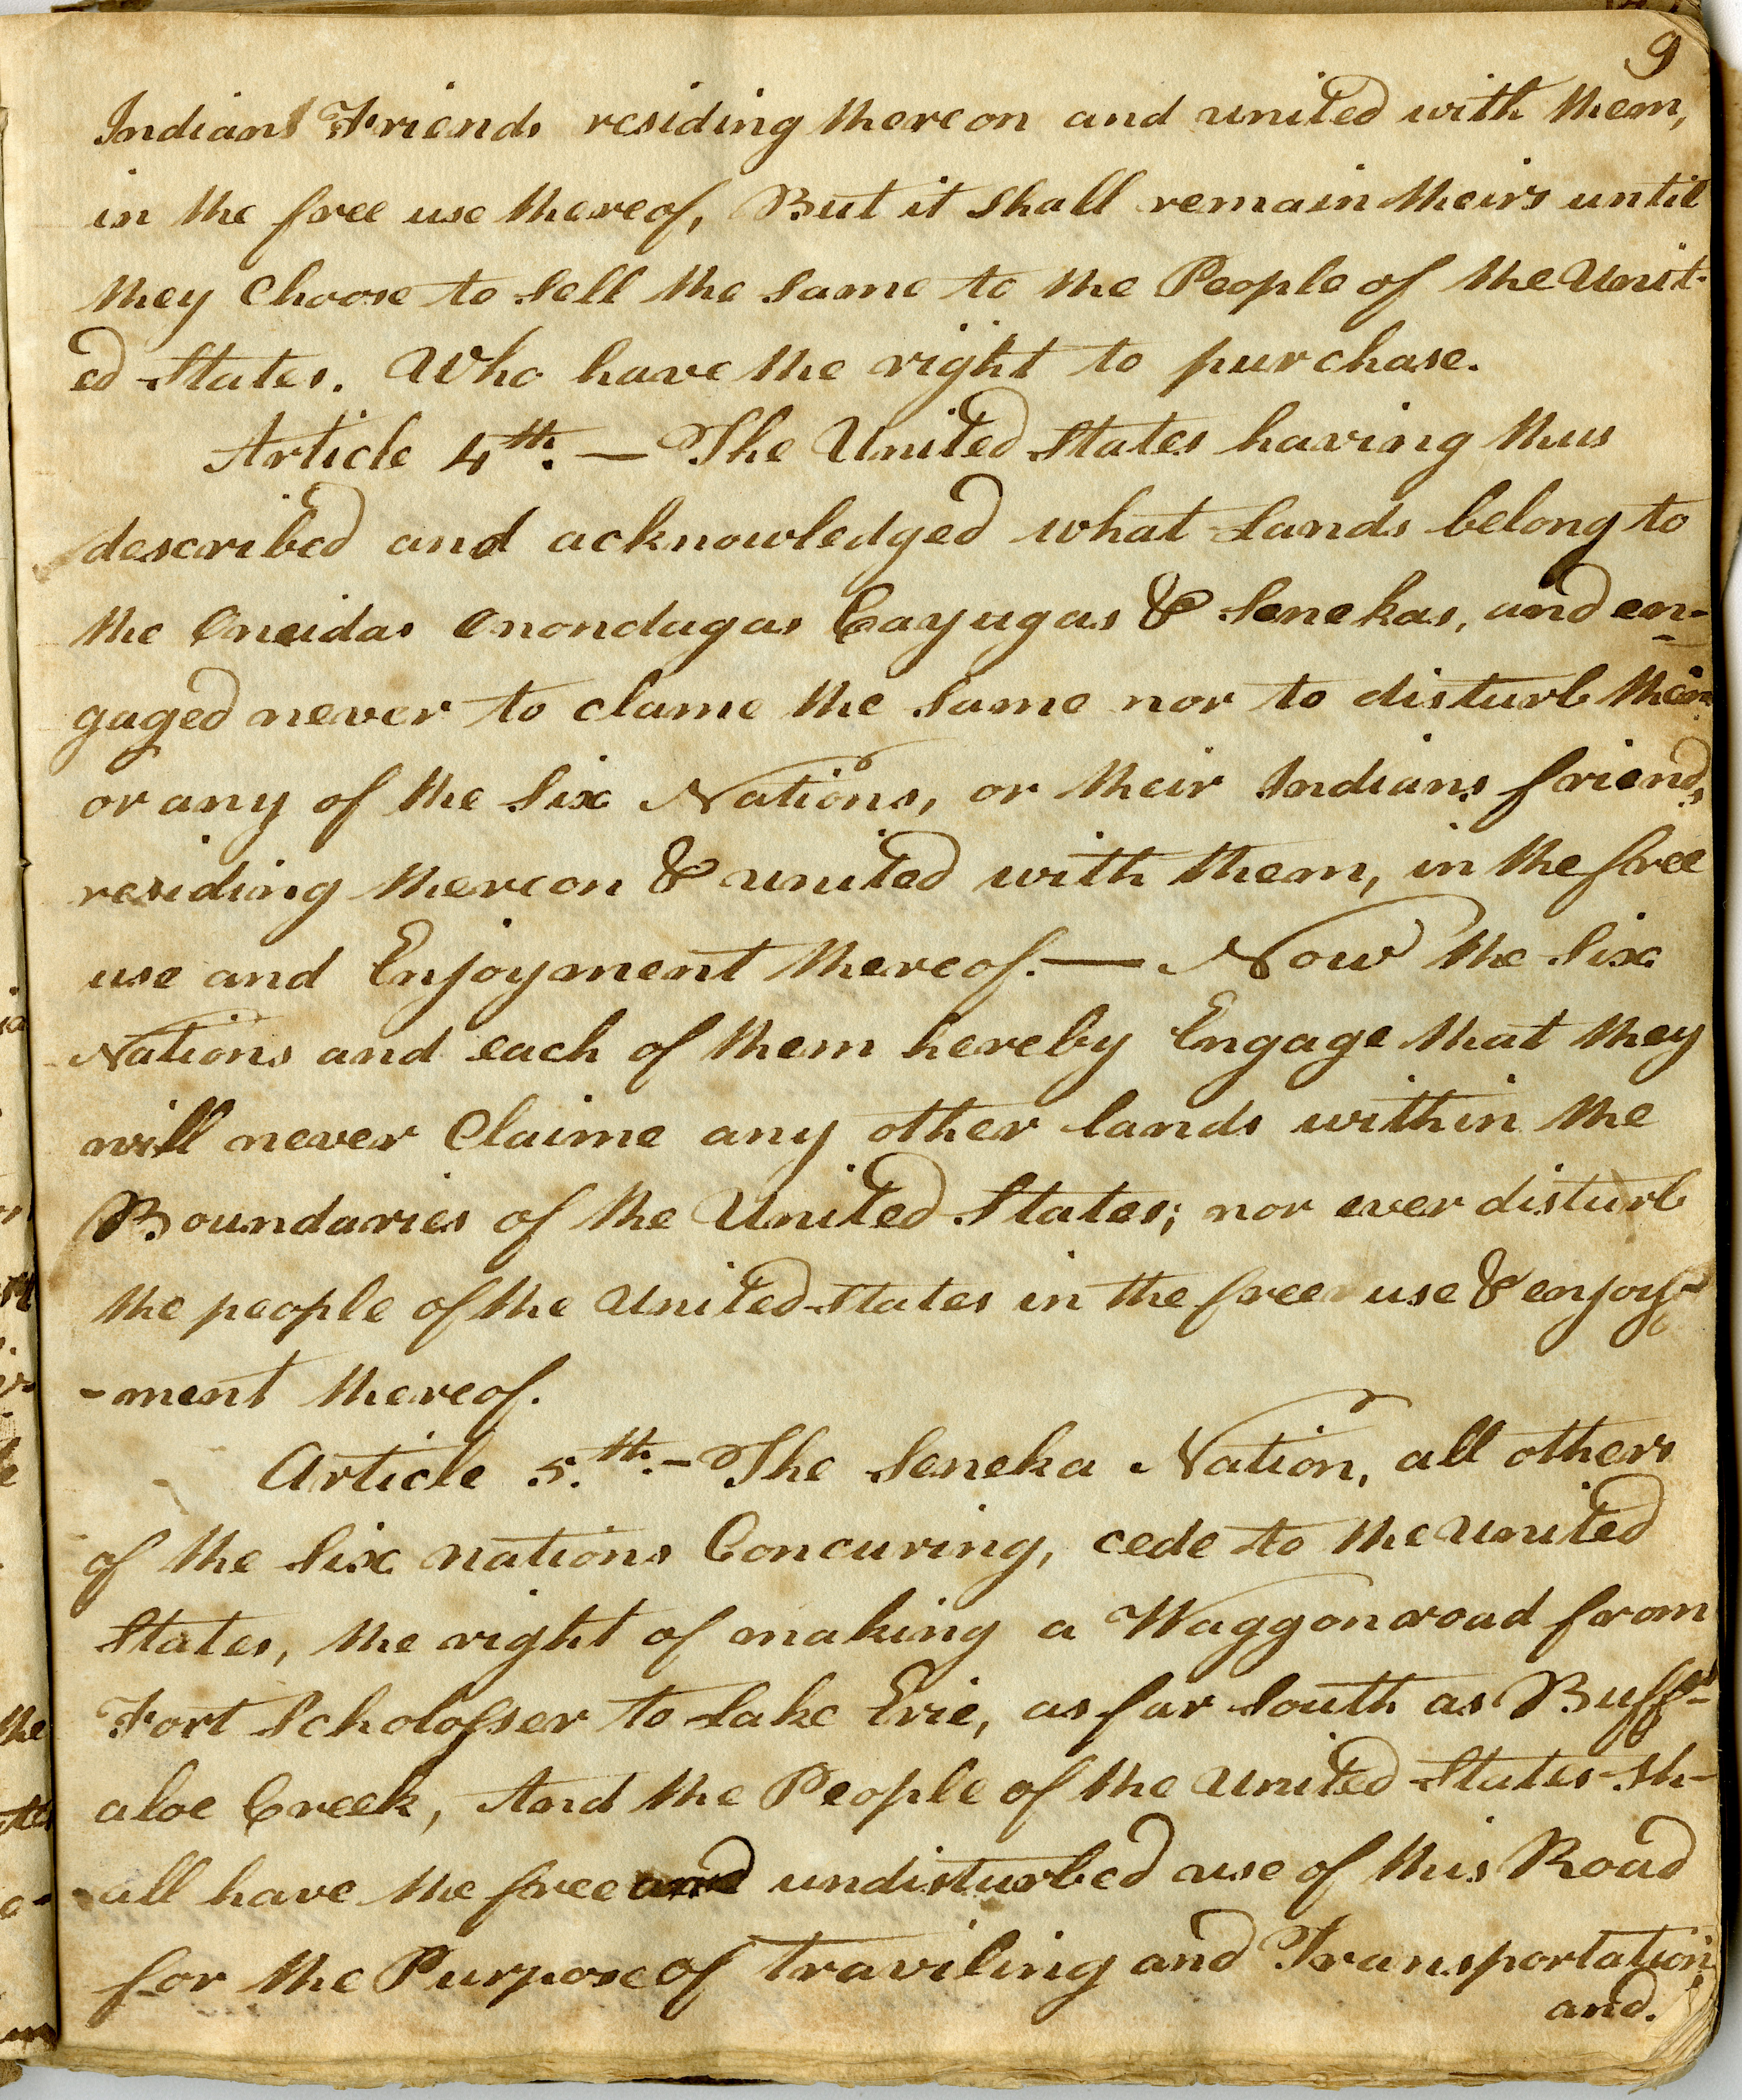 9
Indians Friends residing thereon and united with them,
in the free use thereof, But it shall remain theirs until
they Choose to sell the same to the People of the Unit-
ed States. Who have the right to purchase.
Article 4th. — The United States having thus
described and acknowledged what Lands belong to
the Oneidas Onondagas Cayugas & Senekas, and en-
gaged never to clame the same nor to disturb them
or any of the Six Nations, or their Indians friends,
residing thereon & united with them, in the free
use and Enjoyment thereof. — Now the Six
Nations and each of them hereby Engage that they
will never Claime any other lands within the
Boundaries of the United States; nor ever disturb
the people of the United States in the free use & enjoy-
-ment thereof.
Article 5.th. - The Seneka Nation, all others
of the Six nations Concuring, cede to the United
States, the right of making a Waggon road from
Fort Scholosser to Lake Erie, as far South as Buff-
aloe Creek, And the People of the United States sh-
-all have the free and undisturbed use of this Road
for the Purpose of Traviling and Transportation,
and.